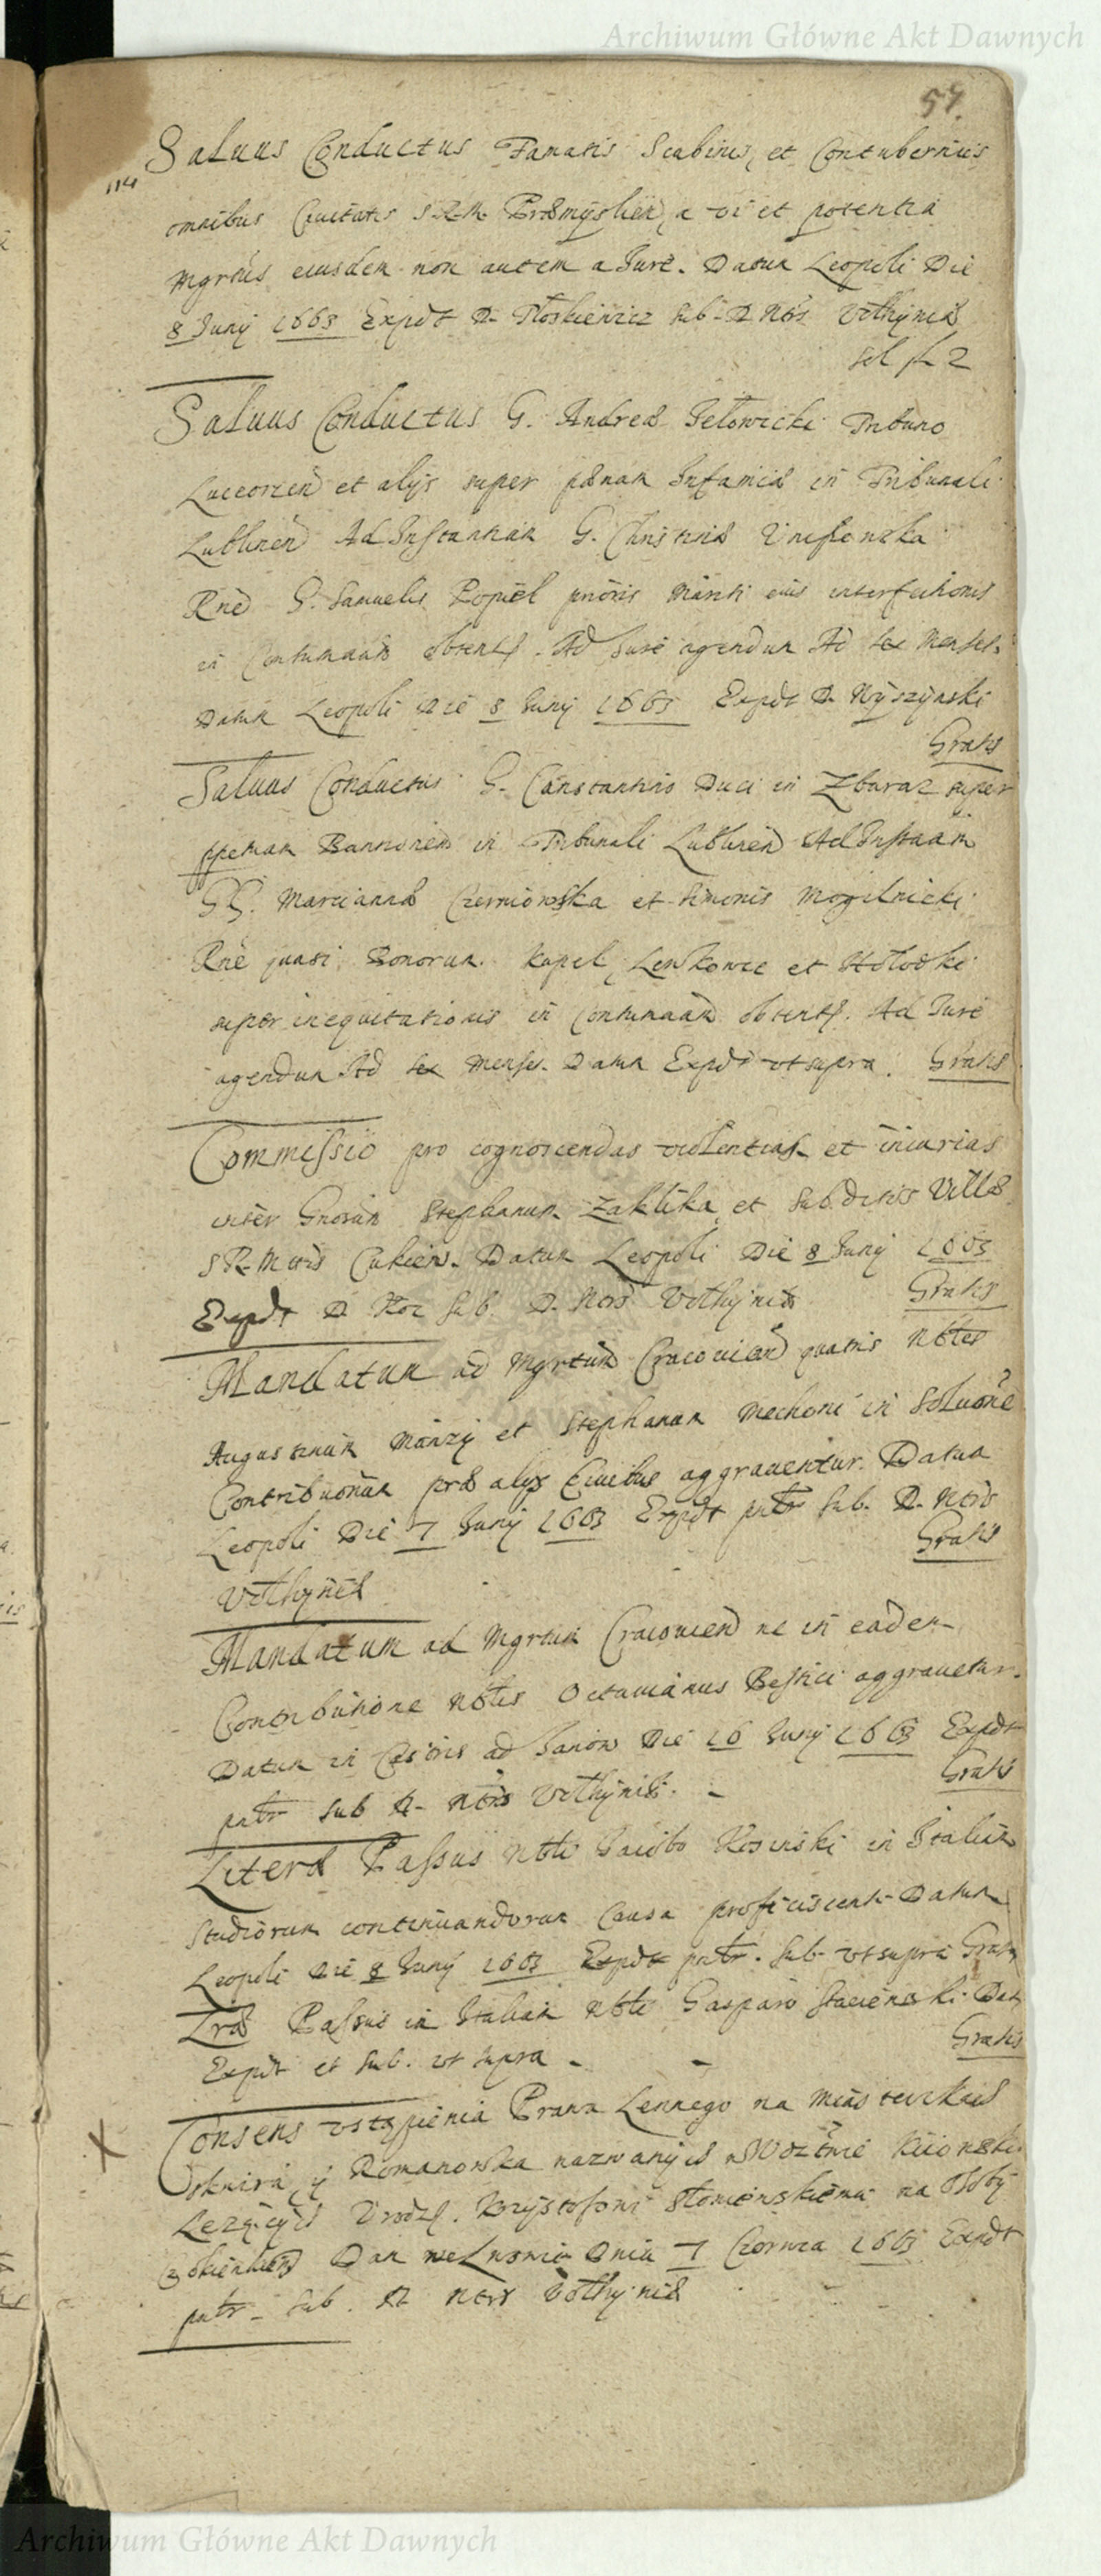 Archiwum Główne Akt Dawnych
57.
Saluus Conductus Famatis Scabinis et Contubernijs
114
omnibus Ciuitatis S R M Præmyslien a vi et potentia
Mgrtûs eiusdem non autem a Jure. Datum Leopoli Die
8 Junij 1663 Expdt D. Płoskiewicz sub D Ntris Volhyniæ
sol fl 2
Saluus Conductus G. Andreæ Jełowicki Tribuno
Luceorien et alijs super pænam Infamiæ in Tribunali
Lublinen Ad Instantiam G. Christinæ
Rne G. Samuelis Popiel prioris Mariti eius interfectionis
in Contumaam obtent. Ad Jure agendum Ad sex Menses.
Datum Leopoli Die 8 Junij 1663 Expdt D. Wyszynski
Gratis
Saluus Conductus G. Constantino Duci in Zbaraz super
ppetuam Bannonem in Tribunali Lublinen Ad Instaam
GG. Marciannæ Czerniowska et Simonis Mogilnicki
Rne quasi Bonorum Kupel, Lenkowce et Hołodki
super inequitationis in Contumaam obtent. Ad Jure
agendum Ad sex Menses. Datum Expdt vt supra. Gratis
Commissio pro cognoscendas violentias et iniurias
inter Gnosum Stephanum Zaklika et Subditos Villæ
S R Mttis Cukiew. Datum Leopoli Die 8 Junij 1663
Expdt D Koc sub. D. Ntris Volhyniæ Gratis
Mandatum ad Mgrtum Cracouien quatnis Nbles
Augustinum Monzy et Stephanum Mechoni in Soluone
Contribuonum præ alijs Ciuibus aggrauentur. Datum
Leopoli Die 7 Junij 1663 Expdt pntr sub. D. Ntris
Gratis
Volhyniæ
Mandatum ad Mgrtum Cracouien ne in eadem
Contributione Nbles Octauianus Bestici aggrauetur.
Datum in Castris ad Janow Die 16 Junij 1663 Expdt
pntr sub D. Ntris Volhyniæ. Gratis
Literæ Passus Nbli Jacobo Kosinski in Italiam
Studiorum continuandorum Causa proficiscenti Datum
Leopoli Die 8 Junij 1663 Expdt pntr. sub vt supra Gratis
Lræ Passus in Italiam Nbli Gasparo Datum
Gratis
Expdt et sub. vt supra
Consens vstąpienia Prawa Lennego na Miasteczkach
y Romanowka nazwanych w Wodztwie Kiiowskim
Leżących Vrodz. Krzysztofowi Słowienskiemu na Osoby
Dan we Lwowie Dnia 7 Czerwca 1663 Expdt
pntr sub. D Ntris Volhyniæ
Archiwum Główne Akt Dawnych